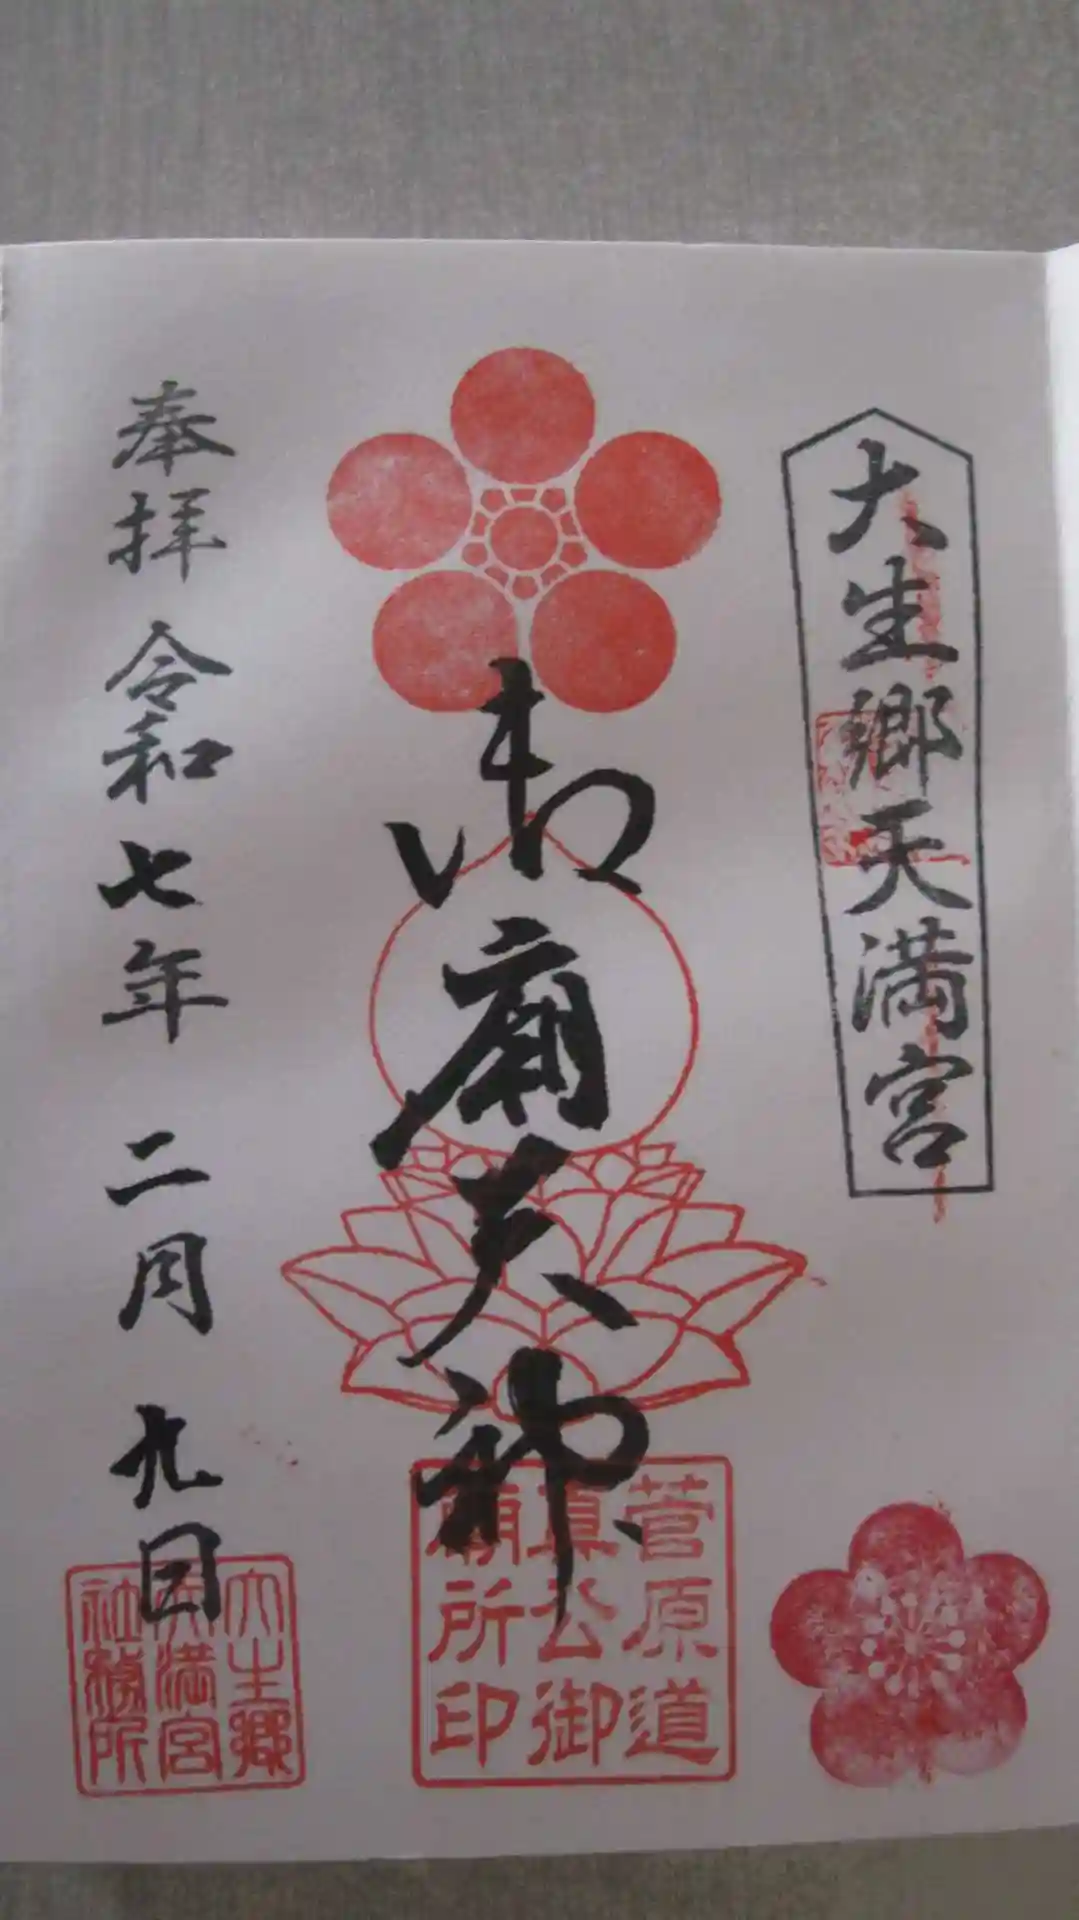 大生郷天満宮
御廟天神
菅原道
真公御
廟所印
奉拝 令和七年 二月 九日
大生郷
天満宮
社務所